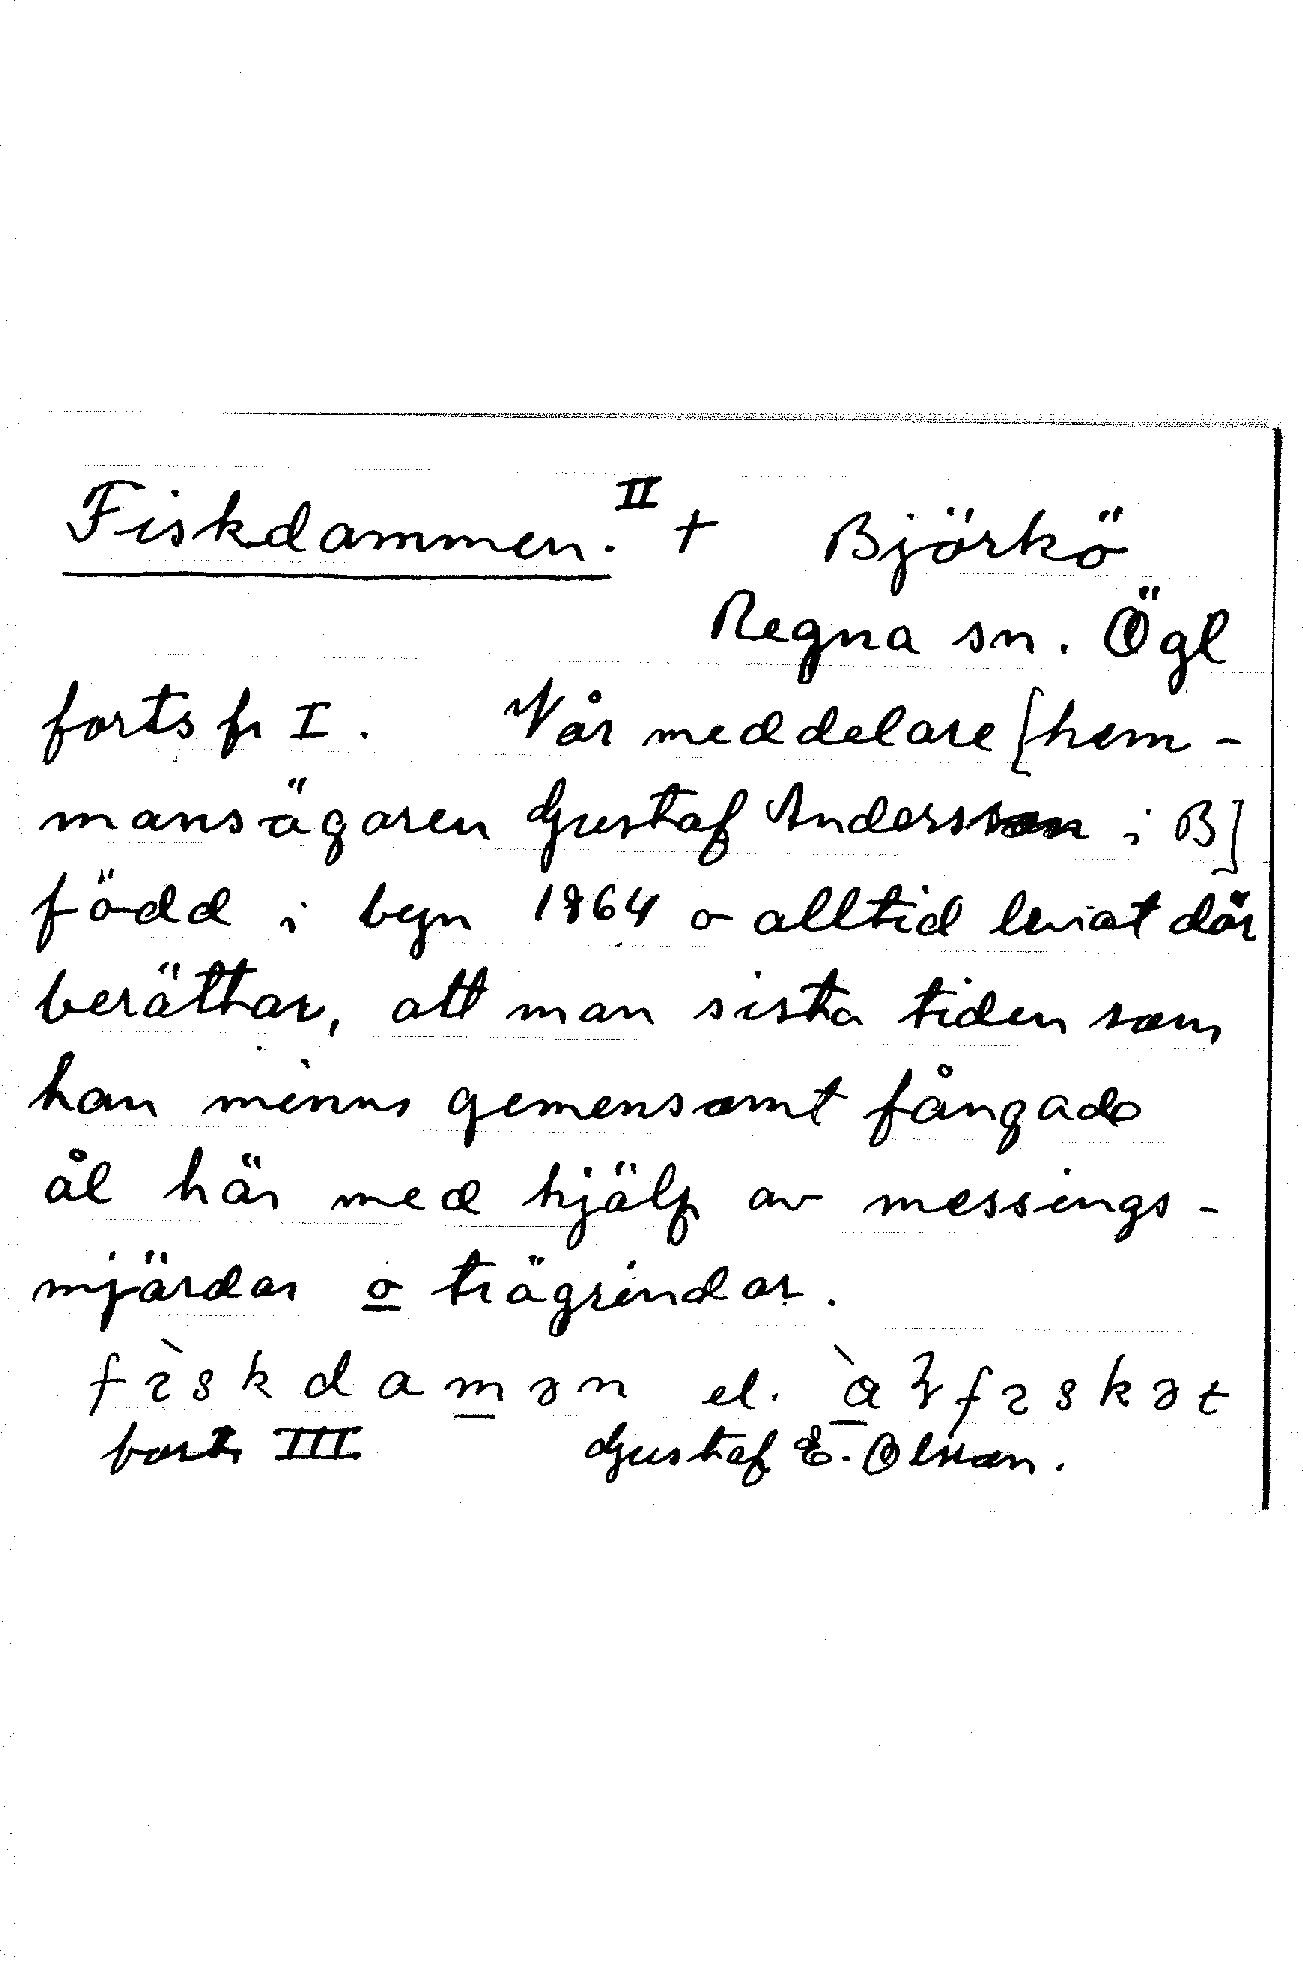 Fiskdammen. II + Björkö
Regna sn. Ögl
forts fr I. Vår meddelare [hem-
mansägaren Gustaf Andersson i B]
född i byn 1864 o alltid leviat där
berättar, att man sista tiden som
han minns gemensamt fångade
ål här med hjälp av messings-
mjärdar o trägrindar.
fìskdamən el.
forts III Gustaf E. Olsson.